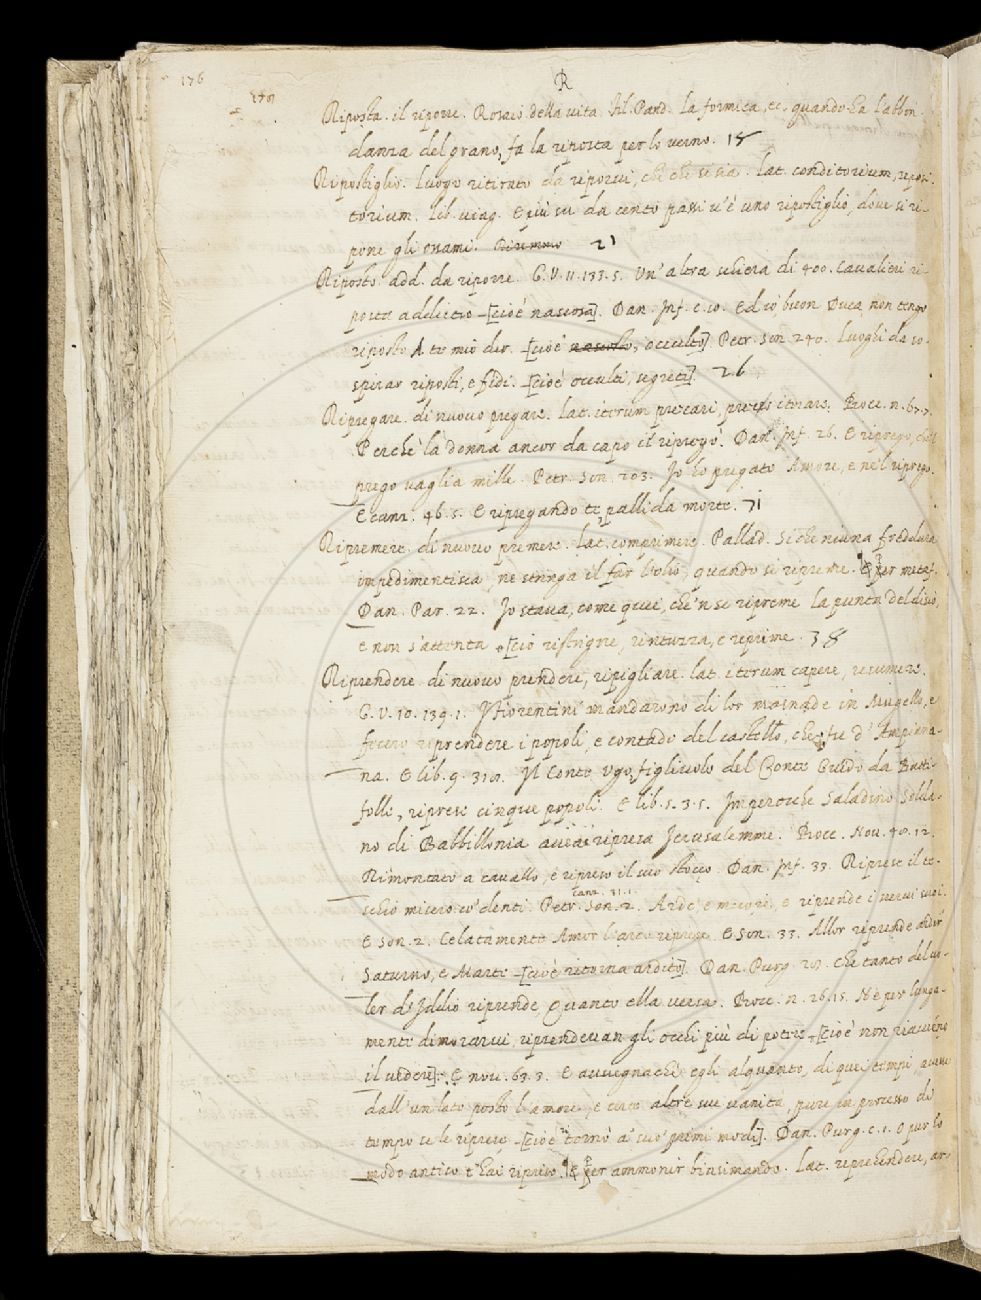 176
R
Riposta. il riporre. Rosaio della vita. Fil. Pand. La formica, ec. quando ha l'abbon
danza del grano, fa la riposta per lo verno. 15
Ripostiglio. Luogo ritirato da riporvi, che che si sia. lat. conditorium, reposi-
torium. lib. viag. E più su da cento passi v'è uno ripostiglio, dove si ri-
pone gli 21
Riposto. add. da riporre. G. V. 11. 133. 5. Un'altra schiera di 400. Cavalieri ri-
posta addietro [cioè nascosa]. Dan. Inf. c. 10. Ed io, buon Duca, non tengo
riposto A te mio dir. [cioè nascosto, occulto] Petr. Son. 240. Luoghi da so-
spirar riposti, e fidi. [cioè occulti, segreti]. 26
Ripregare. di nuovo pregare. lat. iterum precari, preces iterare. Bocc. n. 67. 7.
Perchè la donna ancor da capo il ripregò. Dan. Inf. 26. E ripriego, che'l
priego vaglia mille. Petr. Son. 203. Io ho pregato Amore, e ne'l riprego.
E canz. 46. 5. E ripregando te, pallida morte. 71
Ripremere. di nuovo premere. lat. comprimere. Pallad. Sì che niuna freddura
impedimentisca, ne stringa il far l'olio, quando si ripreme. E per metaf.
Dan. Par. 22. Io stava, come quei, che'n se ripreme La punta del disio,
e non s'attenta. [cio ristrigne, rintuzza, e reprime. 38
Riprendere. di nuovo prendere, ripigliare. lat. iterum capere, resumere.
G. V. 10. 139. 1. I Fiorentini mandarono di lor masnade in Mugello, e
fecero riprendere i popoli, e contado del castello, che fu d'Ampina-
na. E lib. 9. 310. Il Conte Ugo, figliuolo del Conte Guido da Batti-
folle, riprese cinque popoli. E lib. 5. 3. 1. Imperocche Saladino Solda-
no di Babbillonia avea ripresa Jerusalemme. Bocc. Nov. 40. 12.
Rimontato a cavallo, e ripreso il suo stocco. Dan. Inf. 33. Riprese il te-
canz. 31. 1.
schio misero co' denti. Petr. Son. 2. Arde, e more, e riprende i nervi suoi.
E Son. 2. Celatamente Amor l'arco riprese. E Son. 33. Allor riprende ardir
Saturno, e Marte [cioè ritorna ardito]. Dan. Purg. 28. Che tanto del vo-
ler di Iddio riprende, Quanto ella versa. Bocc. n. 26. 15. Nè per lunga-
mente dimorarvi, riprendevan gli occhi più di potere [cioè non riavieno
il vedere]. E nov. 63. 3. E avvegnachè egli alquanto, di quei tempi avesse
dall'un lato posto l'amore, e certe altre sue vanità, pure in processo di
tempo se le riprese [cioè tornò a' suo' primi modi]. Dan. Purg. c. 1. O pur lo
modo antico t'hai ripriso. E per ammonir biasimando. Lat. reprehendere, ar-